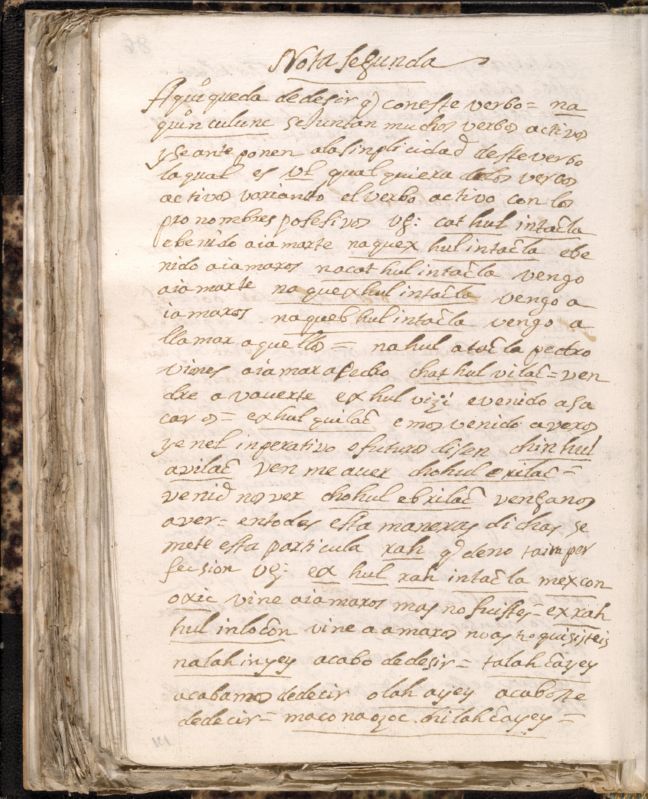 Nota segunda
Aqui queda de desir q̃ con este verbo = na
quin culunc se juntan muchos verbos activos
y se ante ponen a la sinplicidad de este verbo
la qual es Vt qual quiera de los verbos
activos variando el verbo activo con los
pronombres posesivos vg: cat hul intacla
e benido a iamarte naquex hul intacla e be
nido a iamaros nacat hul intacla vengo
a iamarte na quex hul intacla vengo a
iamaros naqueb hul intacla vengo a
llamar aquellos = nahul atacla pedro
vienes a iamar a pedro chat hul vilac = ven
dre a vuerte ex hul vizi e venido a sa
caros = ex hul quilac emos venido a veros
y en el inperativo e futuros disen chin hul
avilac ven me a ver chohul exilac =
venid nos ver chohul ebrilac venganos
a ver = en todas esta maneras dichas se
mete esta particula rah q̃ denota inper
fecsion vg: ex hul rah intacla mex con
oxic vine a iamaros mas no fuistes = ex rah
hul inlocon vine a amaros mas no quisisteis
nalah inyey acabo de desir = talah cayey
acabamos de decir olah ayey acabose
de decir = maconaozoc chilah cayey =